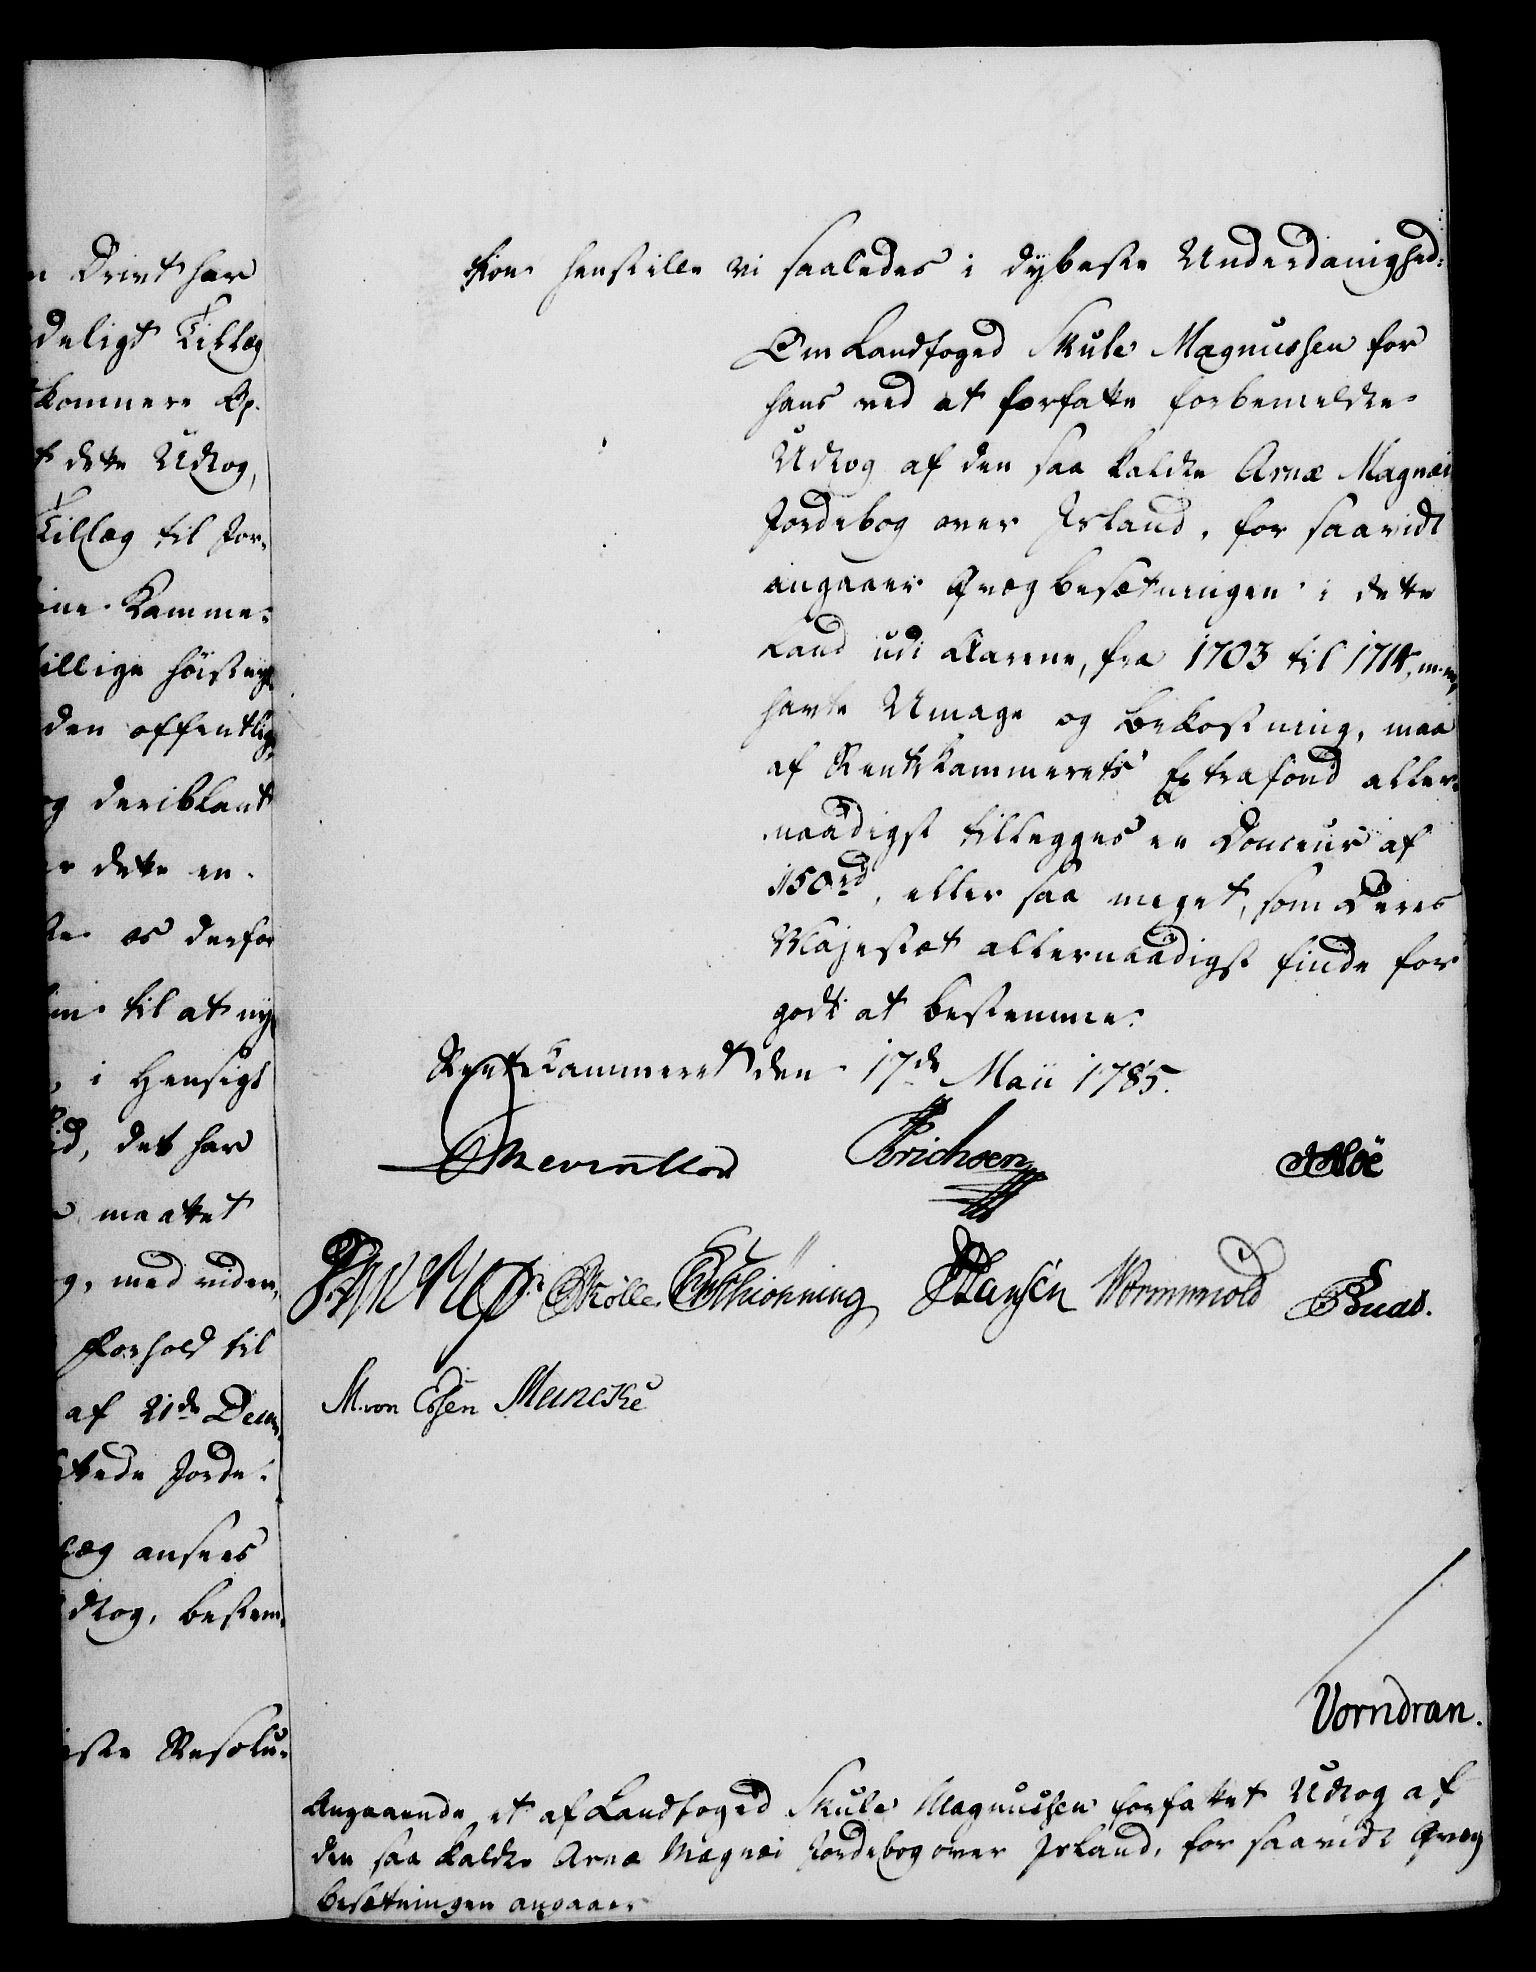 n Drivt har
deligt Tillæg
kommere Op-
t dette Udtog,
Tillæg til Jor-
ine Kamme-
tillige höistnyt
den offentlig
og deriblant
er dette en
te os derfor
til at ny
i Hensigt
det har
maattet
g, med viden,
Forhold til
af 21de Decm
tede Jorde-
læg ansees
dtog, bestem-
iste Resolu-
tion henstille vi saaledes i dybeste Underdanighed:
Om Landfoged Skule Magnussen for
hans ved at forfatte forbemeldte
Udtog af den saa kaldte Arnæ Magnæi
Jordebog over Jsland, for saavidt
angaaer Qvægbesætningen i dette
Land udi Aarene, fra 1703 til 1714,
havte Umage og Bekostning, maa
af Rentekammerets Extrafond aller-
naadigst tillegges en Douceur af
150rd, eller saa meget, som Deres
Majestæt allernaadigst finde for
godt at bestemme.
Rentekammeret den 17de Maii 1785.
Erichsen
Müller Schiönning Hansen Wormskiold
M. von Essen Meincke
Vorndran.
Angaaende et af Landfoged Skule Magnussen forfattet Udtog af
den saa kaldte Arnæ Magnæi Jordebog over Jsland, for saavidt Qvæg
besætningen angaaer